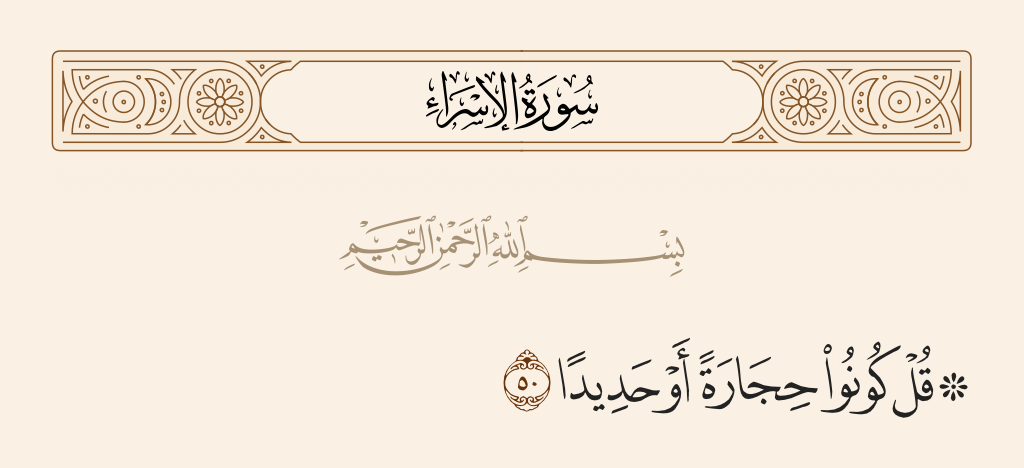 سُورَةُ الإِسْرَاءِ
بِسْمِ ٱللَّهِ ٱلرَّحْمَٰنِ ٱلرَّحِيمِ
۞ قُلْ كُونُوا۟ حِجَارَةً أَوْ حَدِيدًا ٥٠